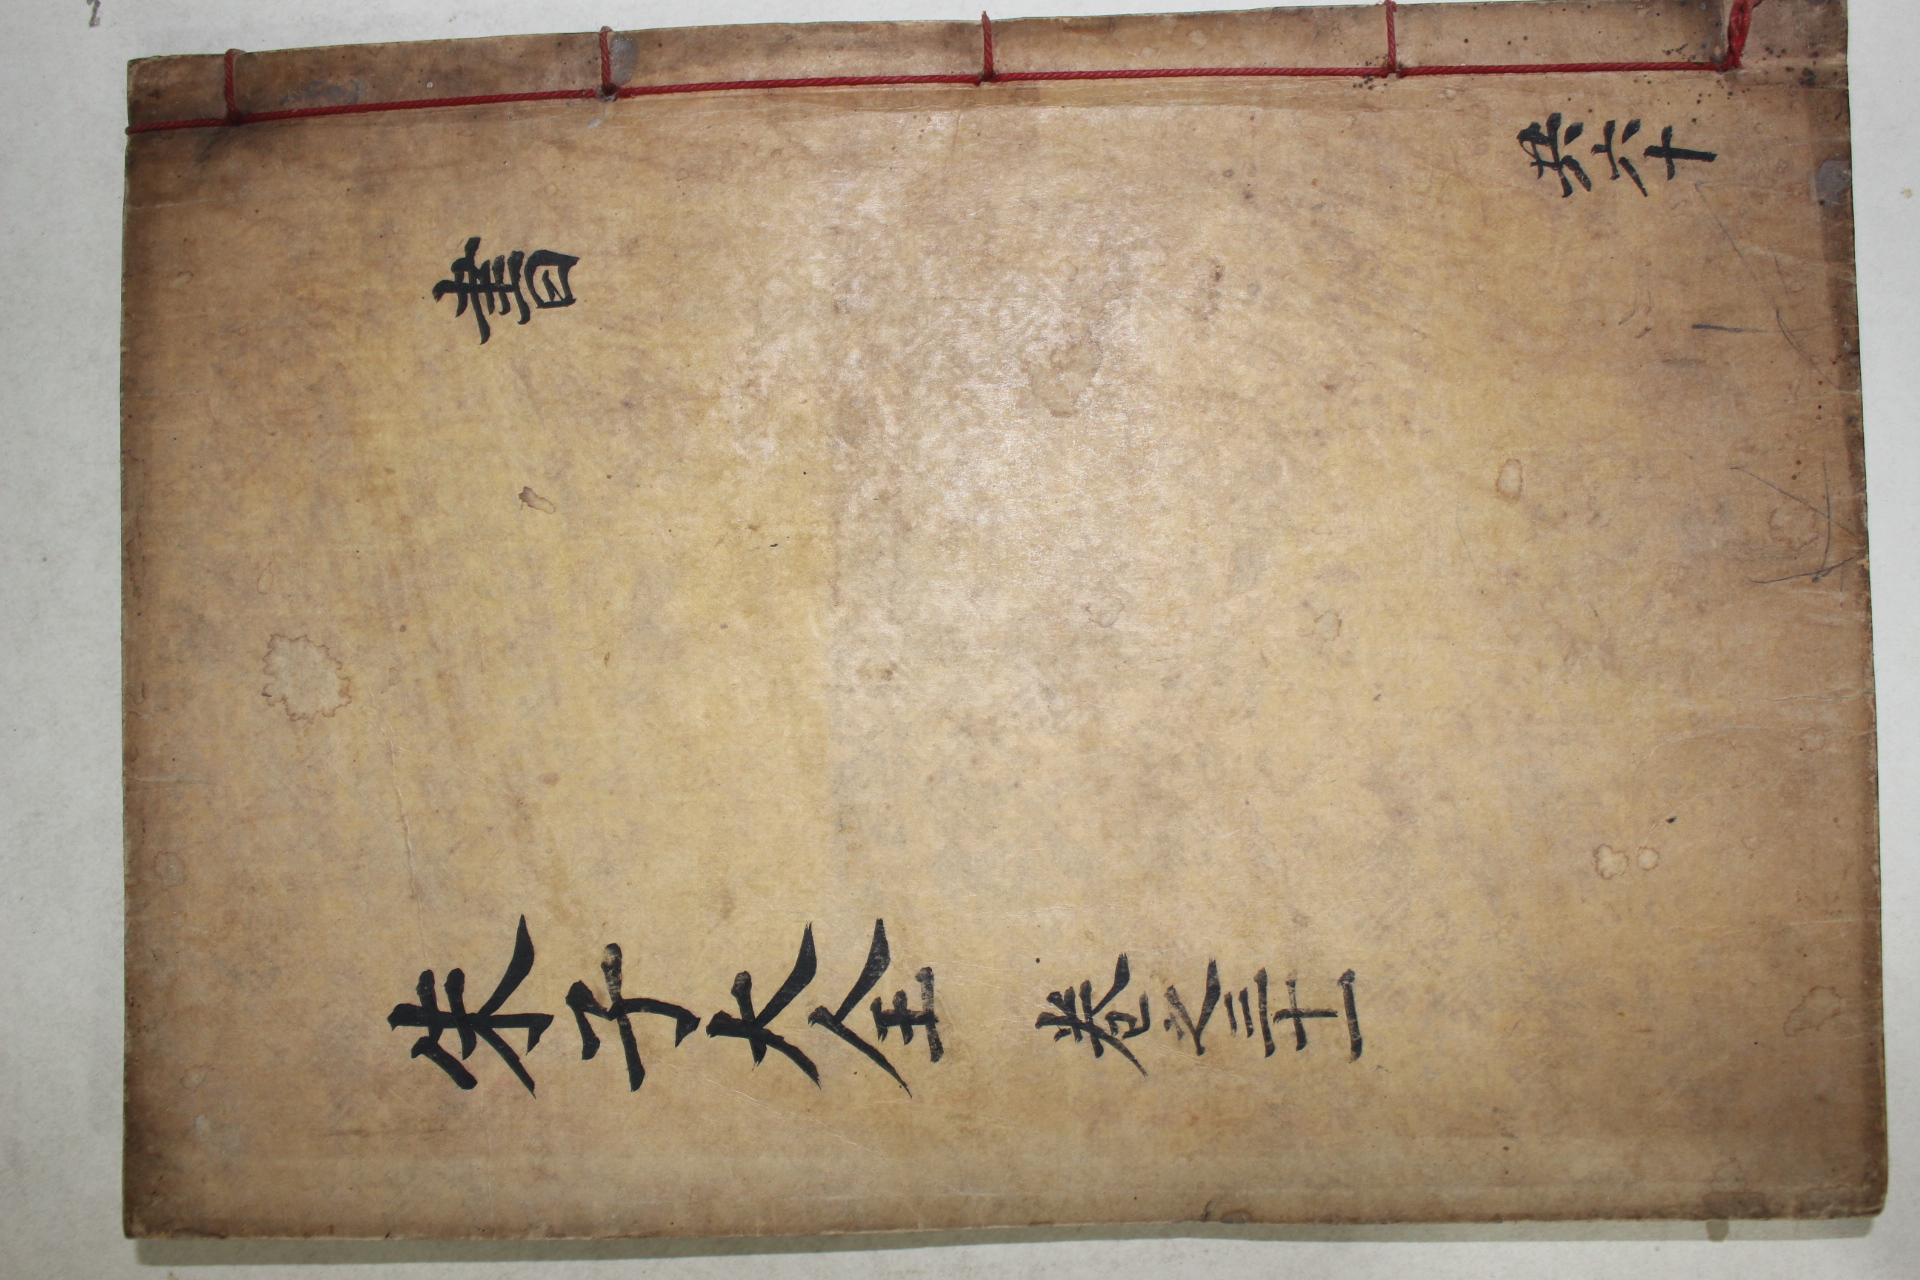 共六十
書
朱子大全 卷之三十一